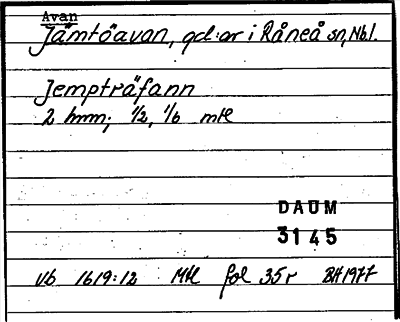 Avan
Jämtöavan, gd:ar i Råneå sn, Nbl.
Jempträfann
2 hmm; 1/2, 1/6 mtl
DAUM
3145
Vb 1619:12 Mtl fol 35r BH 1977